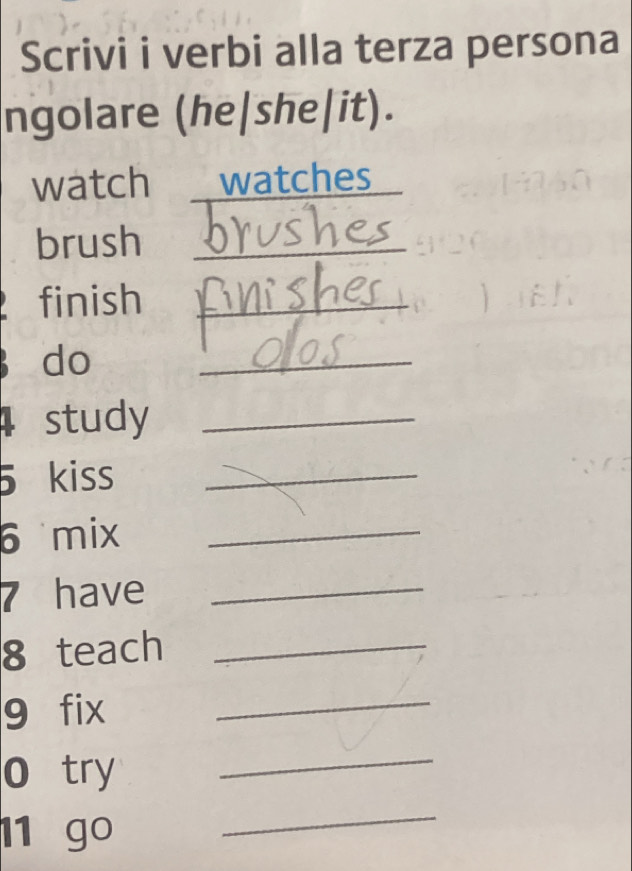 Scrivi i verbi alla terza persona
ngolare (he/she/it).
watch watches
brush brushes
finish finishes
do dos
4 study
5 kiss
6 mix
7 have
8 teach
9 fix
0 try
11 go